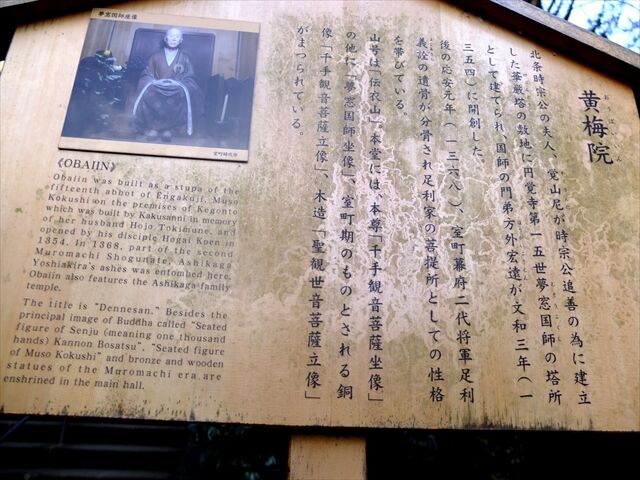 黄梅院
おうばいいん
北条時宗公の夫人、覚山尼が時宗公追善の為に建立
した華厳塔の敷地に円覚寺第一五世夢窓国師の塔所
として建てられ、国師の門弟方外宏遠が文和三年(一
三五四)に開創した。
後の応安元年(一三六八)、室町幕府二代将軍足利
義詮の遺骨が分骨され足利家の菩提所としての性格
を帯びている。
山号は「伝衣山」。本堂には、本尊「千手観音菩薩坐像」
の他に、「夢窓国師坐像」、室町期のものとされる銅
像「千手観音菩薩立像」、木造「聖観世音菩薩立像」
がまつられている。
夢窓国師坐像
室町時代作
《OBAIIN》
Obaiin was built as a stupa of the
fifteenth abbot of Engakuji, Muso
Kokushi on the premises of Kegonto
which was built by Kakusanni in memory
of her husband Hojo Tokimune, and
opened by his disciple Hogai Koen in
1354. In 1368, part of the second
Muromachi Shogunate, Ashikaga
Yoshiakira's ashes was entombed here.
Obaiin also features the Ashikaga family
temple.
The title is "Dennesan." Besides the
principal image of Buddha called "Seated
figure of Senju (meaning one thousand
hands) Kannon Bosatsu", "Seated figure
of Muso Kokushi" and bronze and wooden
statues of the Muromachi era are
enshrined in the main hall.